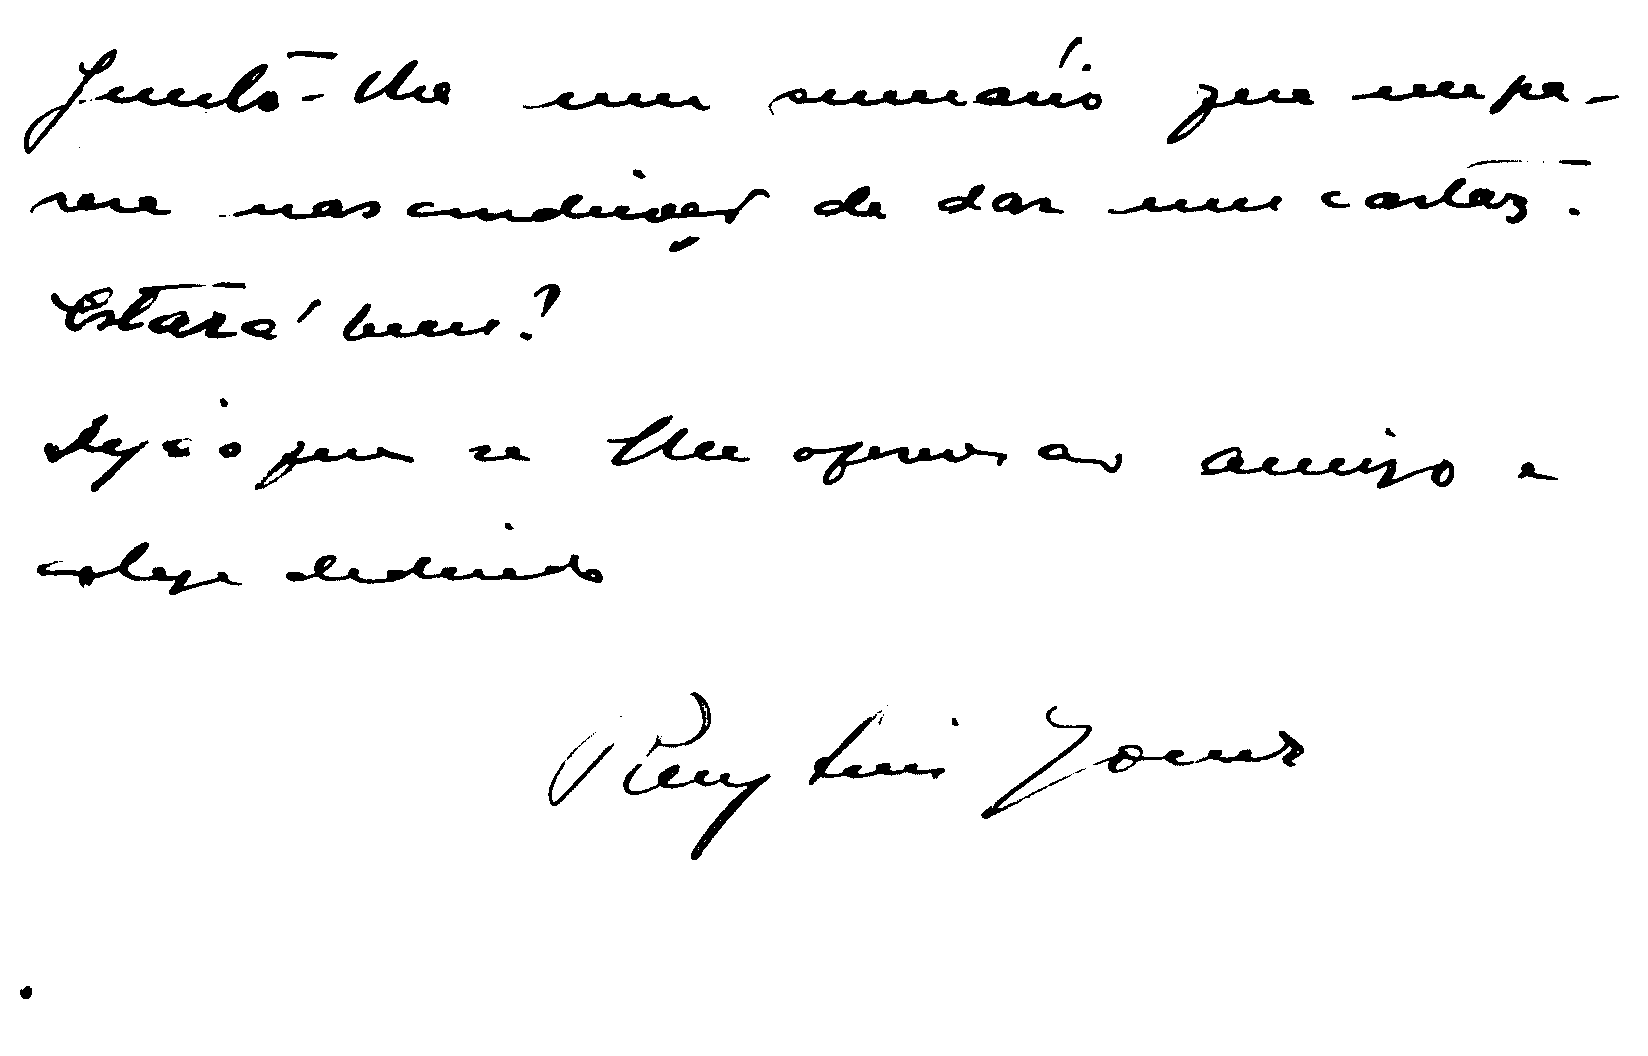 Junto-lhe um sumário que me pa-
rece nas condições de dar um cartaz.
Estará bem?
Veja o que se lhe oferece ao amigo e
colega dedicado
Ruy Luís Gomes